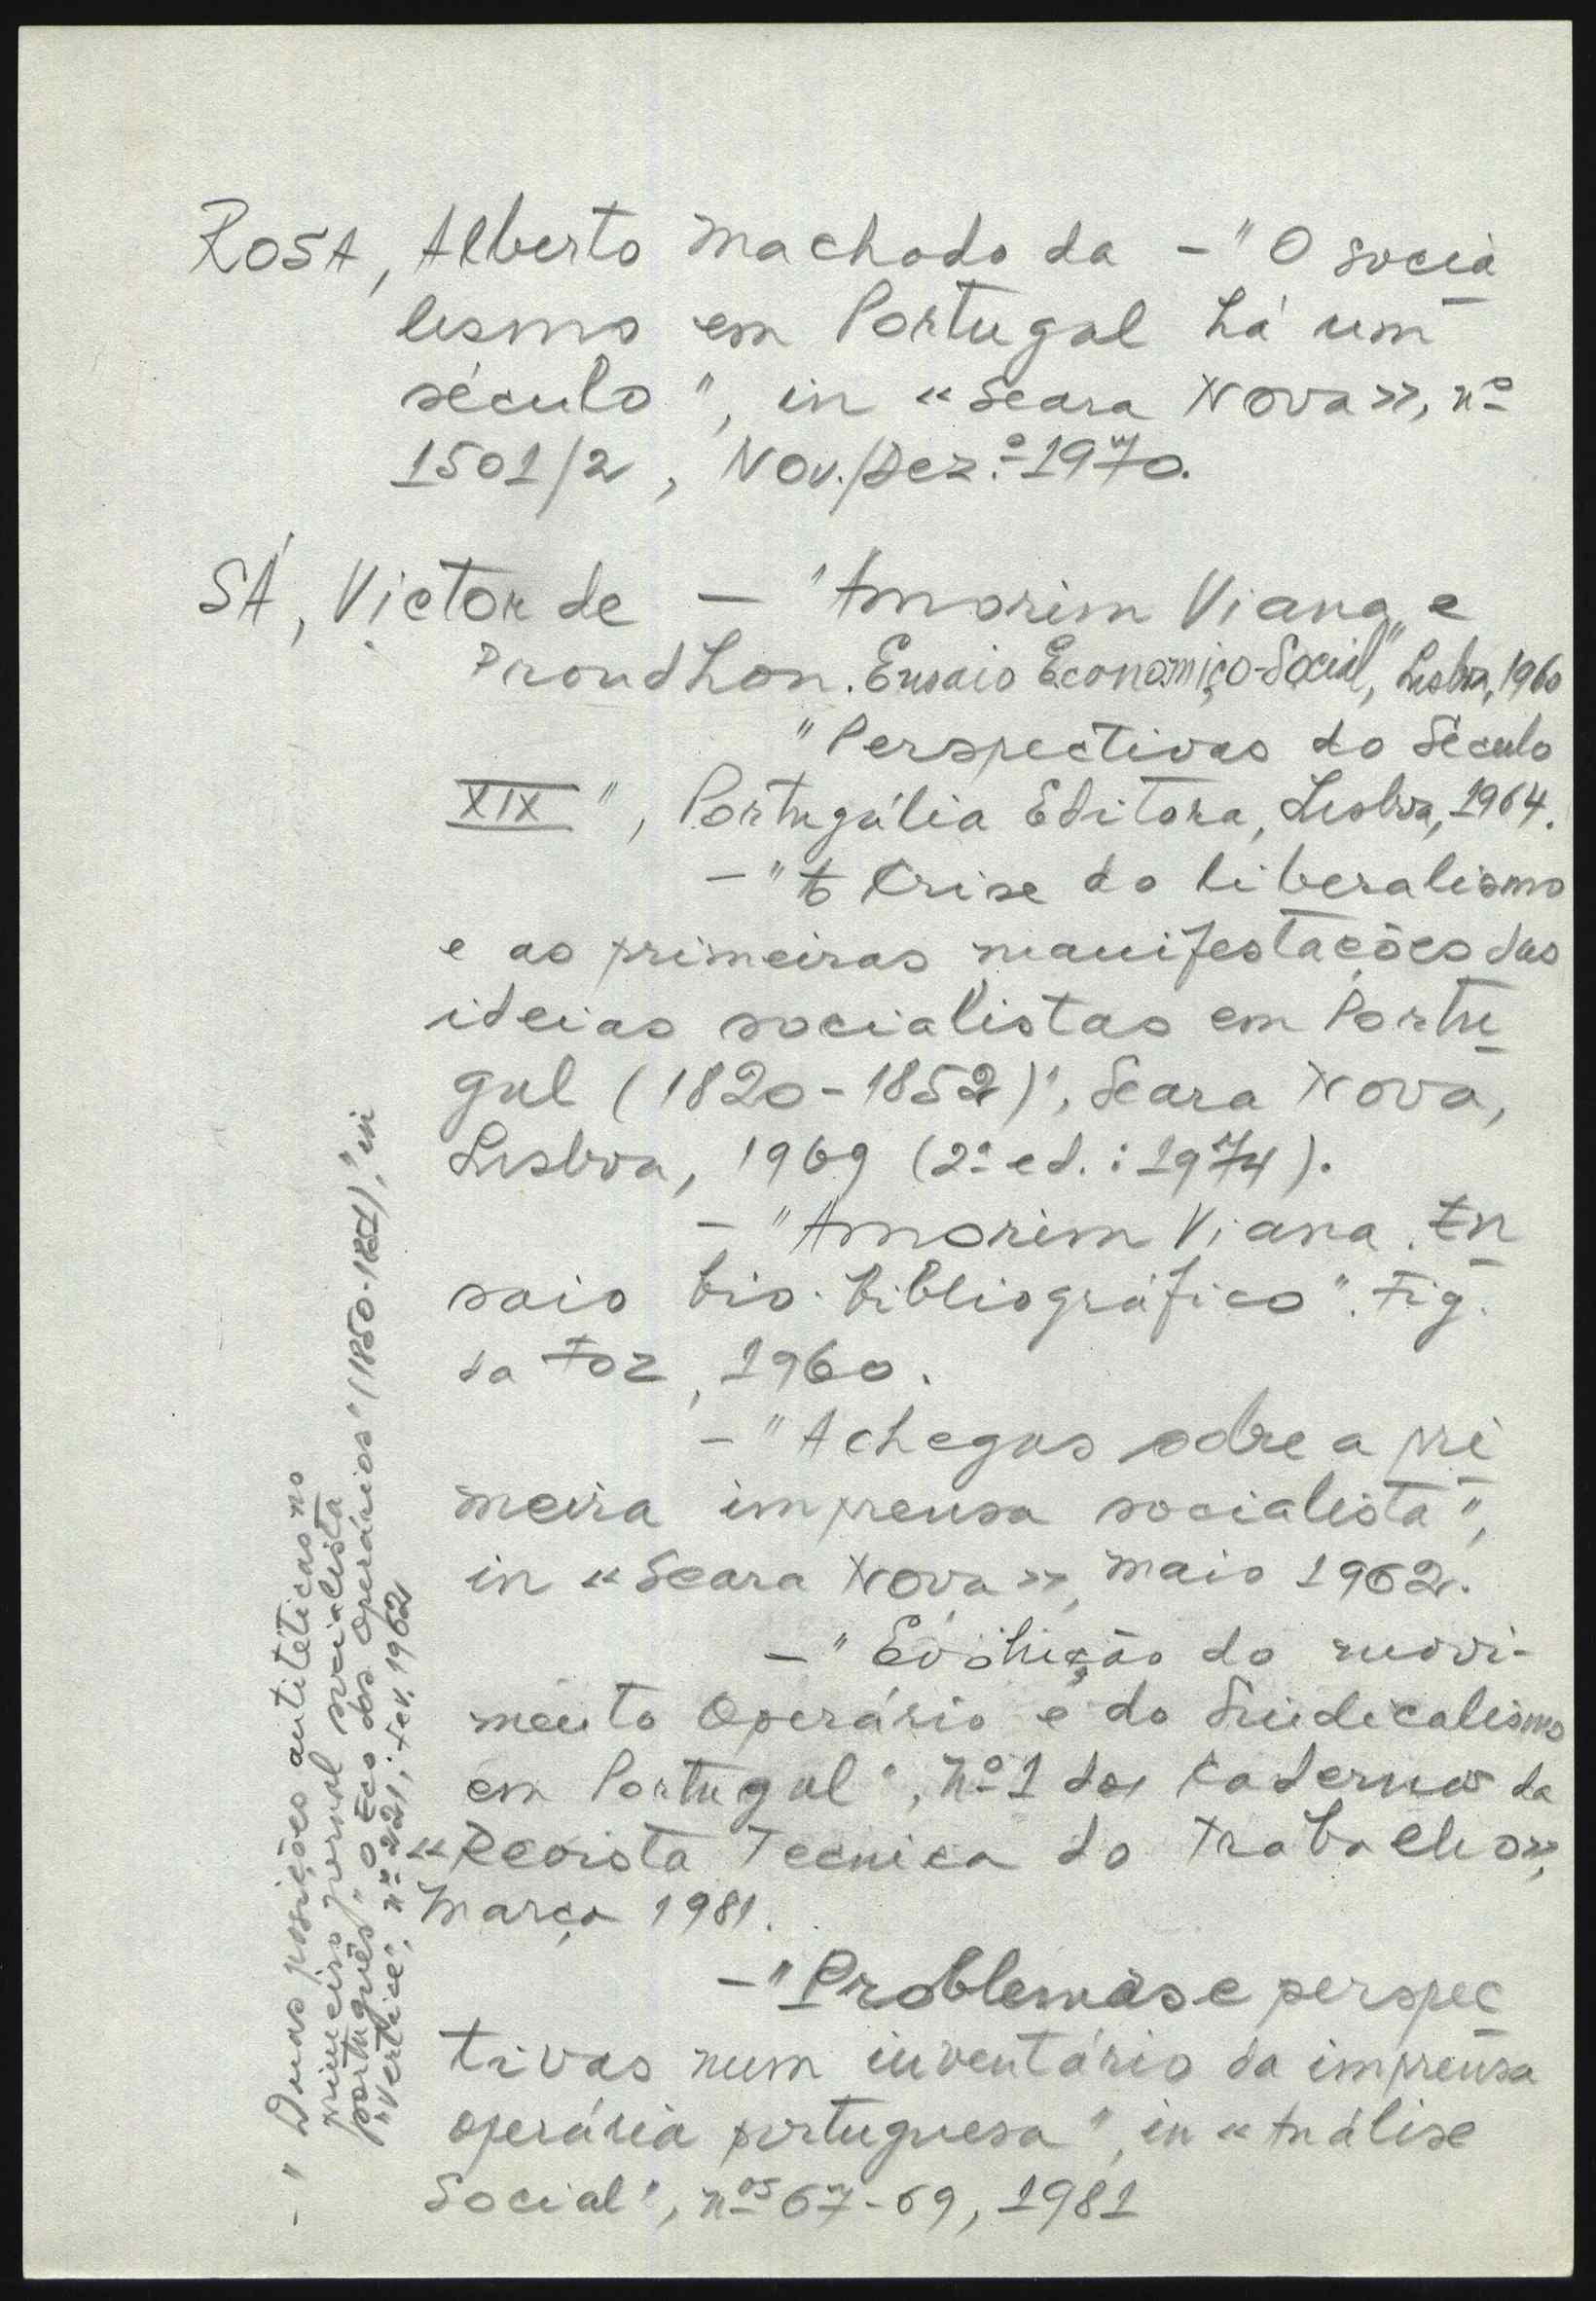 ROSA, Alberto Machado da - "O socia
lismo em Portugal há um
século", in «Seara Nova», nº
1501/2, Nov./Dez.º 1970.
SÁ, Victor de - "Amorim Viana e
Proudhon. Ensaio Económico-Social", Lisboa, 1960
"Perspectivas do Século
XIX", Portugália Editora, Lisboa, 1964.
- "A Crise do liberalismo
e as primeiras manifestações das
ideias socialistas em Portu
gal (1820-1852)", Seara Nova,
Lisboa, 1969 (2ª ed.: 1974).
- "Amorim Viana. En
saio bio-bibliográfico". Fig.
da Foz, 1960.
- "Achegas sobre a pri
meira imprensa socialista",
in «Seara Nova», Maio 1962.
- "Evolução do movi-
mento Operário e do Sindicalismo
em Portugal", nº 1 dos Cadernos da
«Revista Técnica do Trabalho»,
Março 1981.
- "Problemas e perspec
tivas num inventário da imprensa
operária portuguesa", in «Análise
Social", nos 67-69, 1981
- "Duas posições antitéticas no
primeiro jornal socialista
português, "O Eco dos Operários" (1850-1851)", in
"Vértice", nº 221, Fev. 1962